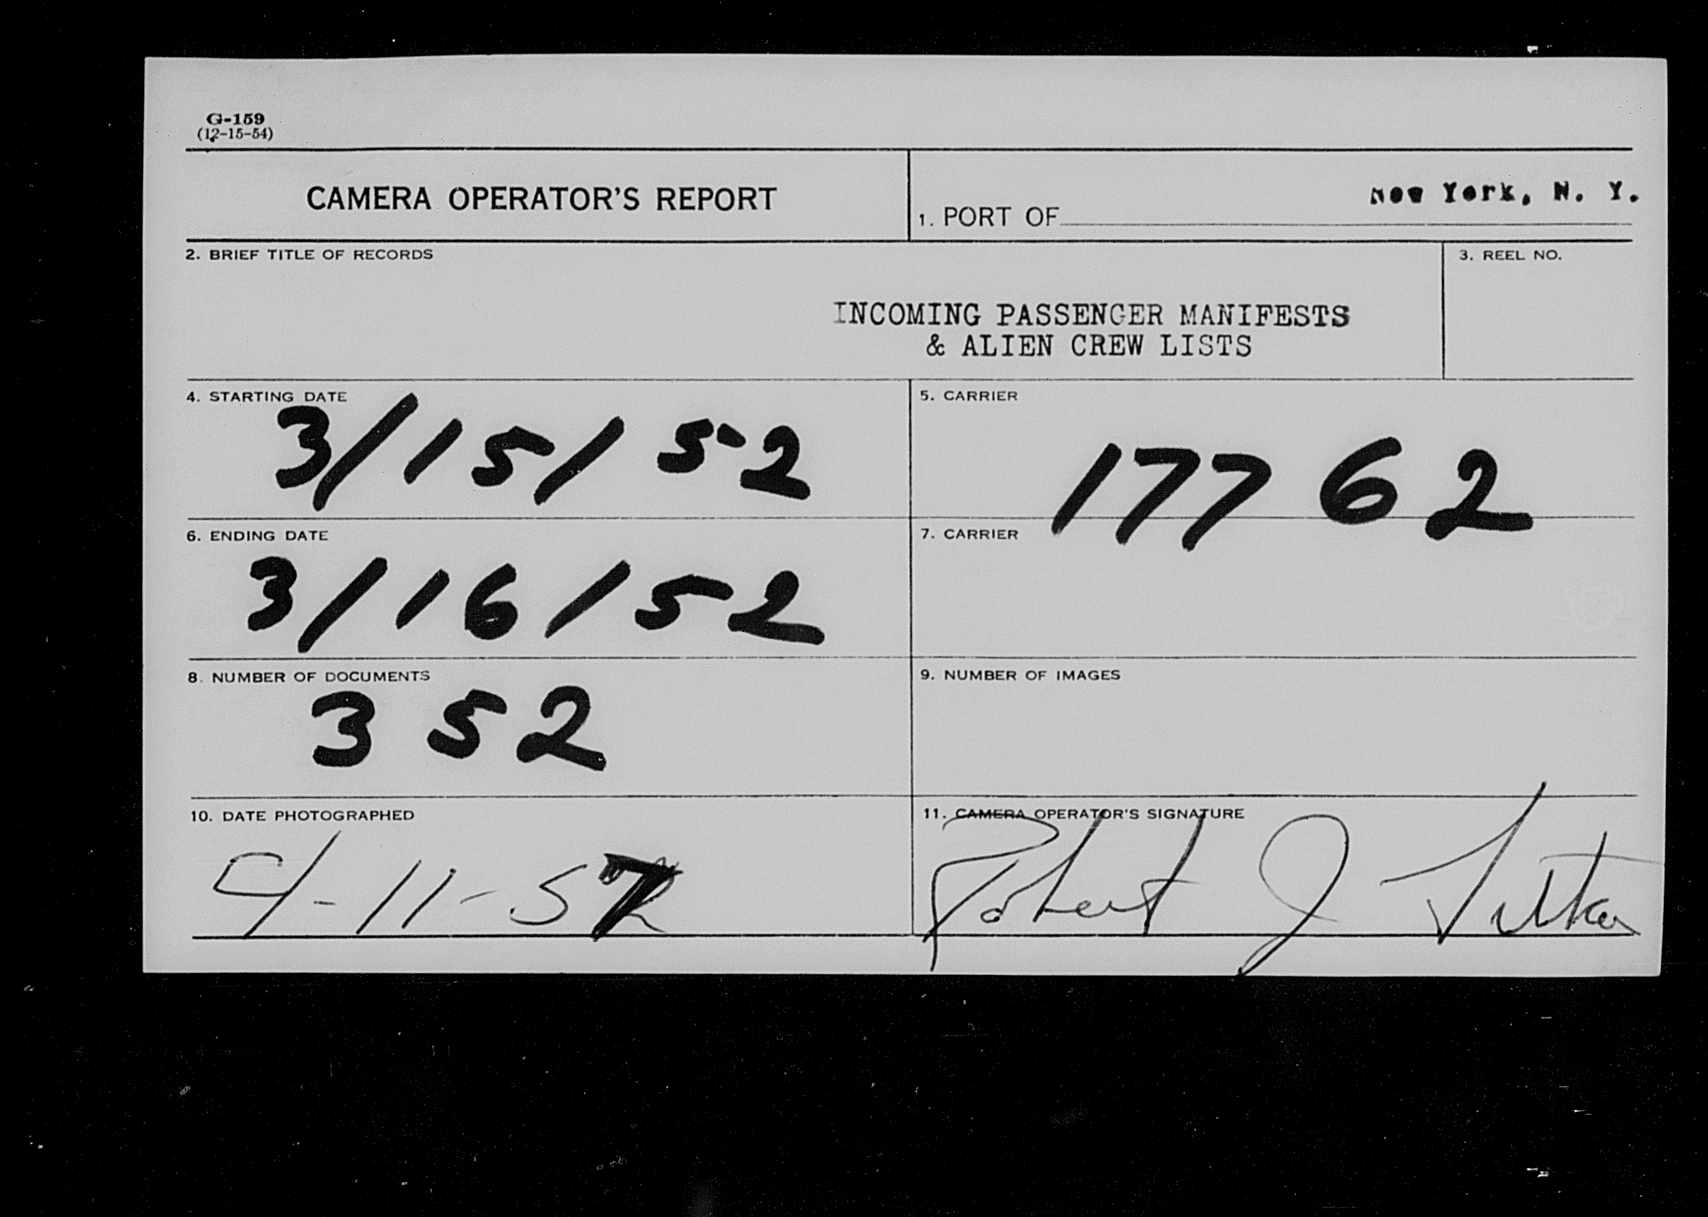 G-159
(12-15-54)
CAMERA OPERATOR'S REPORT
1. PORT OF New York, N. Y.
2. BRIEF TITLE OF RECORDS
INCOMING PASSENGER MANIFESTS
& ALIEN CREW LISTS
3. REEL NO.
4. STARTING DATE
3/15/52
5. CARRIER
17762
6. ENDING DATE
3/16/52
7. CARRIER
8. NUMBER OF DOCUMENTS
352
9. NUMBER OF IMAGES
10. DATE PHOTOGRAPHED
4-11-57
11. CAMERA OPERATOR'S SIGNATURE
Robert J